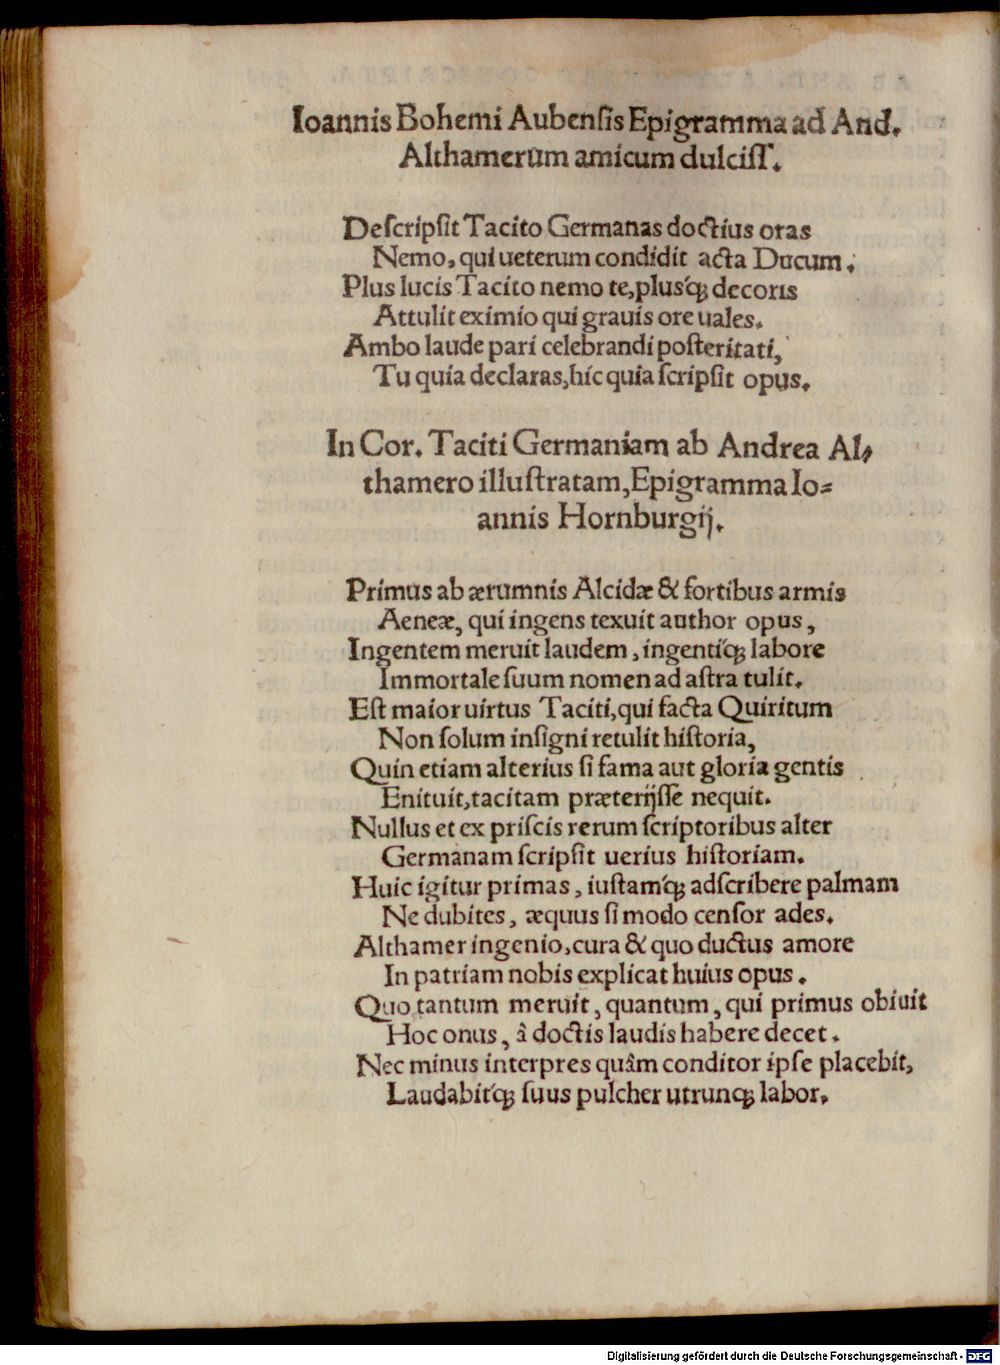 Ioannis Bohemi Aubensis Epigramma ad And.
Althamerum amicum dulciss.
Descripsit Tacito Germanas doctius oras
Nemo, qui ueterum condidit acta Ducum.
Plus lucis Tacito nemo te, plusq́ꝫ decoris
Attulit eximio qui grauis ore uales.
Ambo laude pari celebrandi posteritati,
Tu quia declaras, hic quia scripsit opus.
In Cor. Taciti Germaniam ab Andrea Al-
thamero illustratam, Epigramma Io-
annis Hornburgij.
Primus ab ærumnis Alcidæ & fortibus armis
Aeneæ, qui ingens texuit author opus,
Ingentem meruit laudem, ingentiq́ꝫ labore
Immortale suum nomen ad astra tulit.
Est maior uirtus Taciti, qui facta Quiritum
Non solum insigni retulit historia,
Quin etiam alterius si fama aut gloria gentis
Enituit, tacitam præterijsse nequit.
Nullus et ex priscis rerum scriptoribus alter
Germanam scripsit uerius historiam.
Huic igitur primas, iustamq́ꝫ adscribere palmam
Ne dubites, æquus si modo censor ades.
Althamer ingenio, cura & quo ductus amore
In patriam nobis explicat huius opus.
Quo tantum meruit, quantum, qui primus obiuit
Hoc onus, â doctis laudis habere decet.
Nec minus interpres quâm conditor ipse placebit,
Laudabitq́ꝫ suus pulcher utrunqꝫ labor.
Digitalisierung gefördert durch die Deutsche Forschungsgemeinschaft - DFG